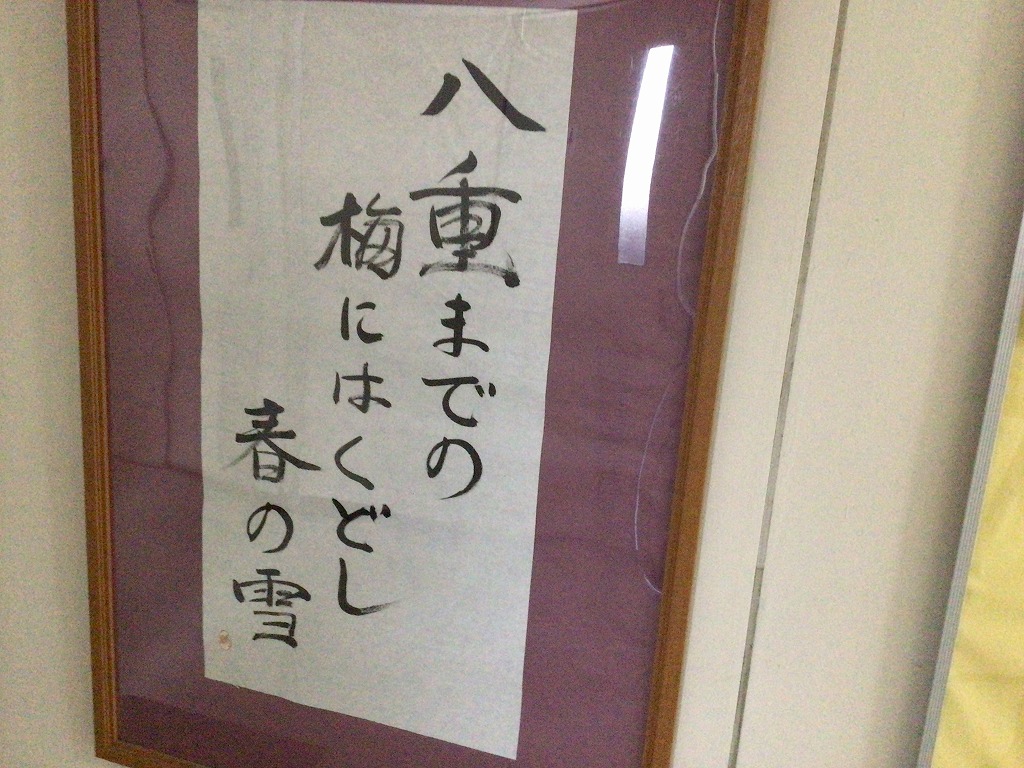 八重までの
梅にはくどし
春の雪